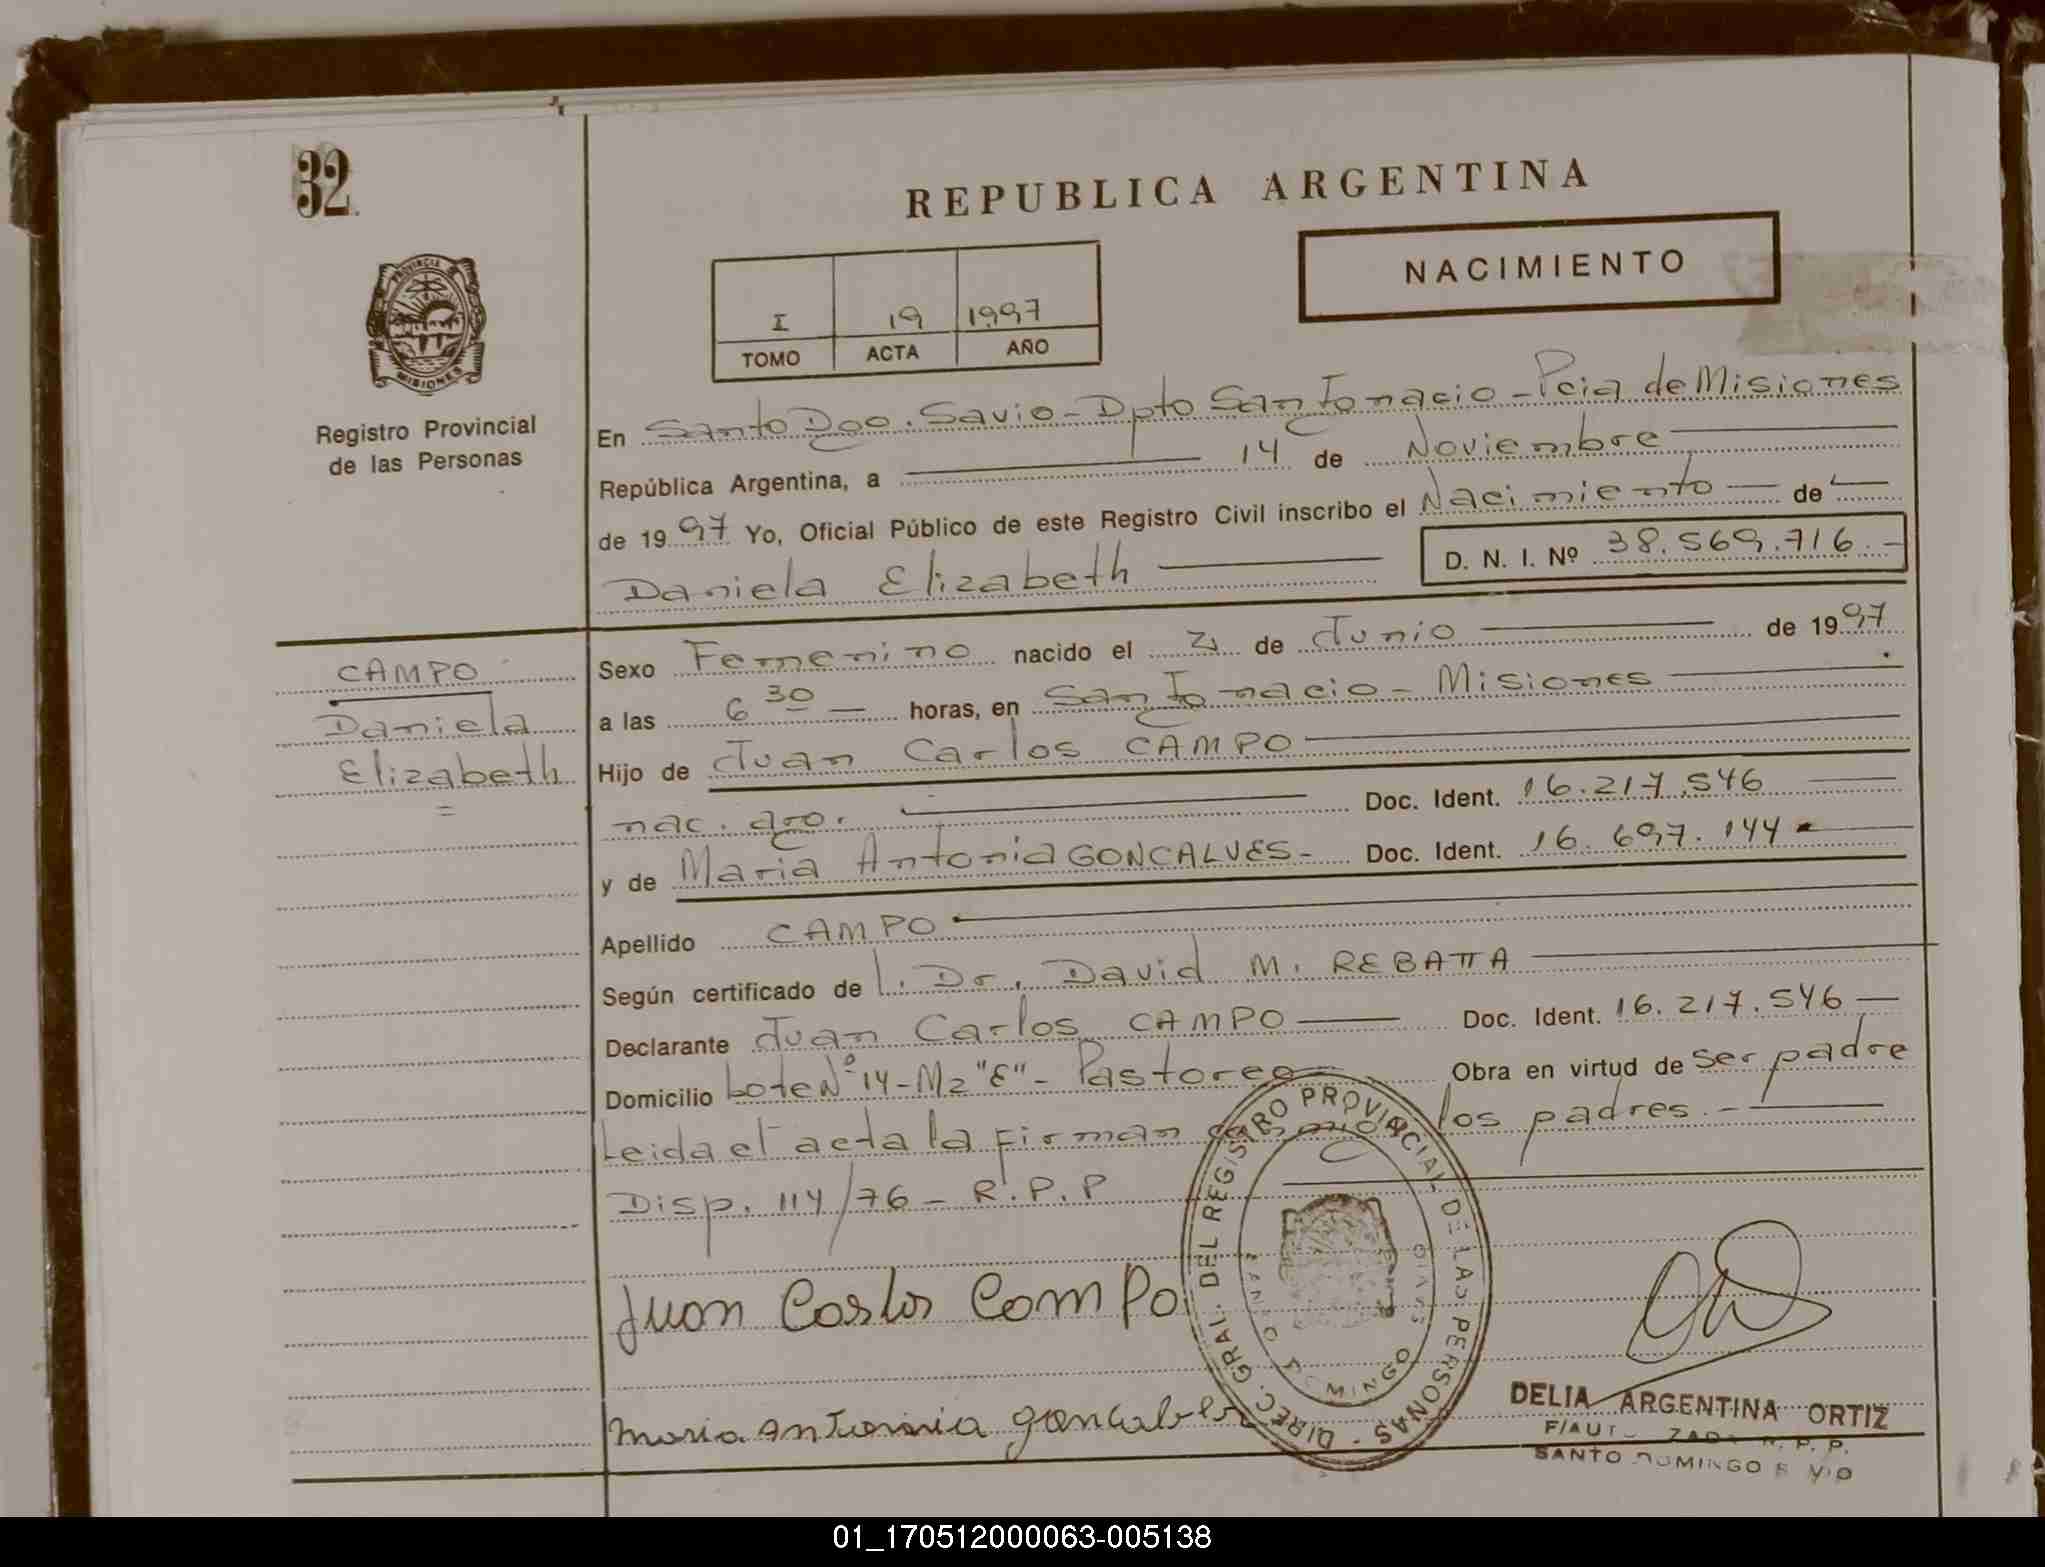 32
REPUBLICA ARGENTINA
NACIMIENTO
I 19 1997
TOMO ACTA AÑO
PROVINCIA DE MISIONES
Registro Provincial
de las Personas
En Santo Dgo. Savio - Dpto San Ignacio - Pcia de Misiones
República Argentina, a 14 de Noviembre
de 1997 Yo, Oficial Público de este Registro Civil inscribo el Nacimiento de
Daniela Elizabeth D. N. I. Nº 38.569.716.-
CAMPO
Daniela
Elizabeth
Sexo Femenino nacido el 21 de Junio de 1997
a las 6 30 horas, en San Ignacio - Misiones
Hijo de Juan Carlos CAMPO
nac. arg. Doc. Ident. 16.217.546
y de Maria Antonia GONCALVES - Doc. Ident. 16.697.144
Apellido CAMPO
Según certificado de l. Dr. David M. REBATTA
Declarante Juan Carlos CAMPO Doc. Ident. 16.217.546
Domicilio Lote Nº 14 - Mz "E" - Pastoreo Obra en virtud de ser padre
Leida el acta la firman los padres.-
Disp. 114/76 - R.P.P
DIREC. GRAL. DEL REGISTRO PROVINCIAL DE LAS PERSONAS
Juan Carlos Campo
Maria Antonia
DELIA ARGENTINA ORTIZ
R. P. P.
SANTO DOMINGO
01_170512000063-005138